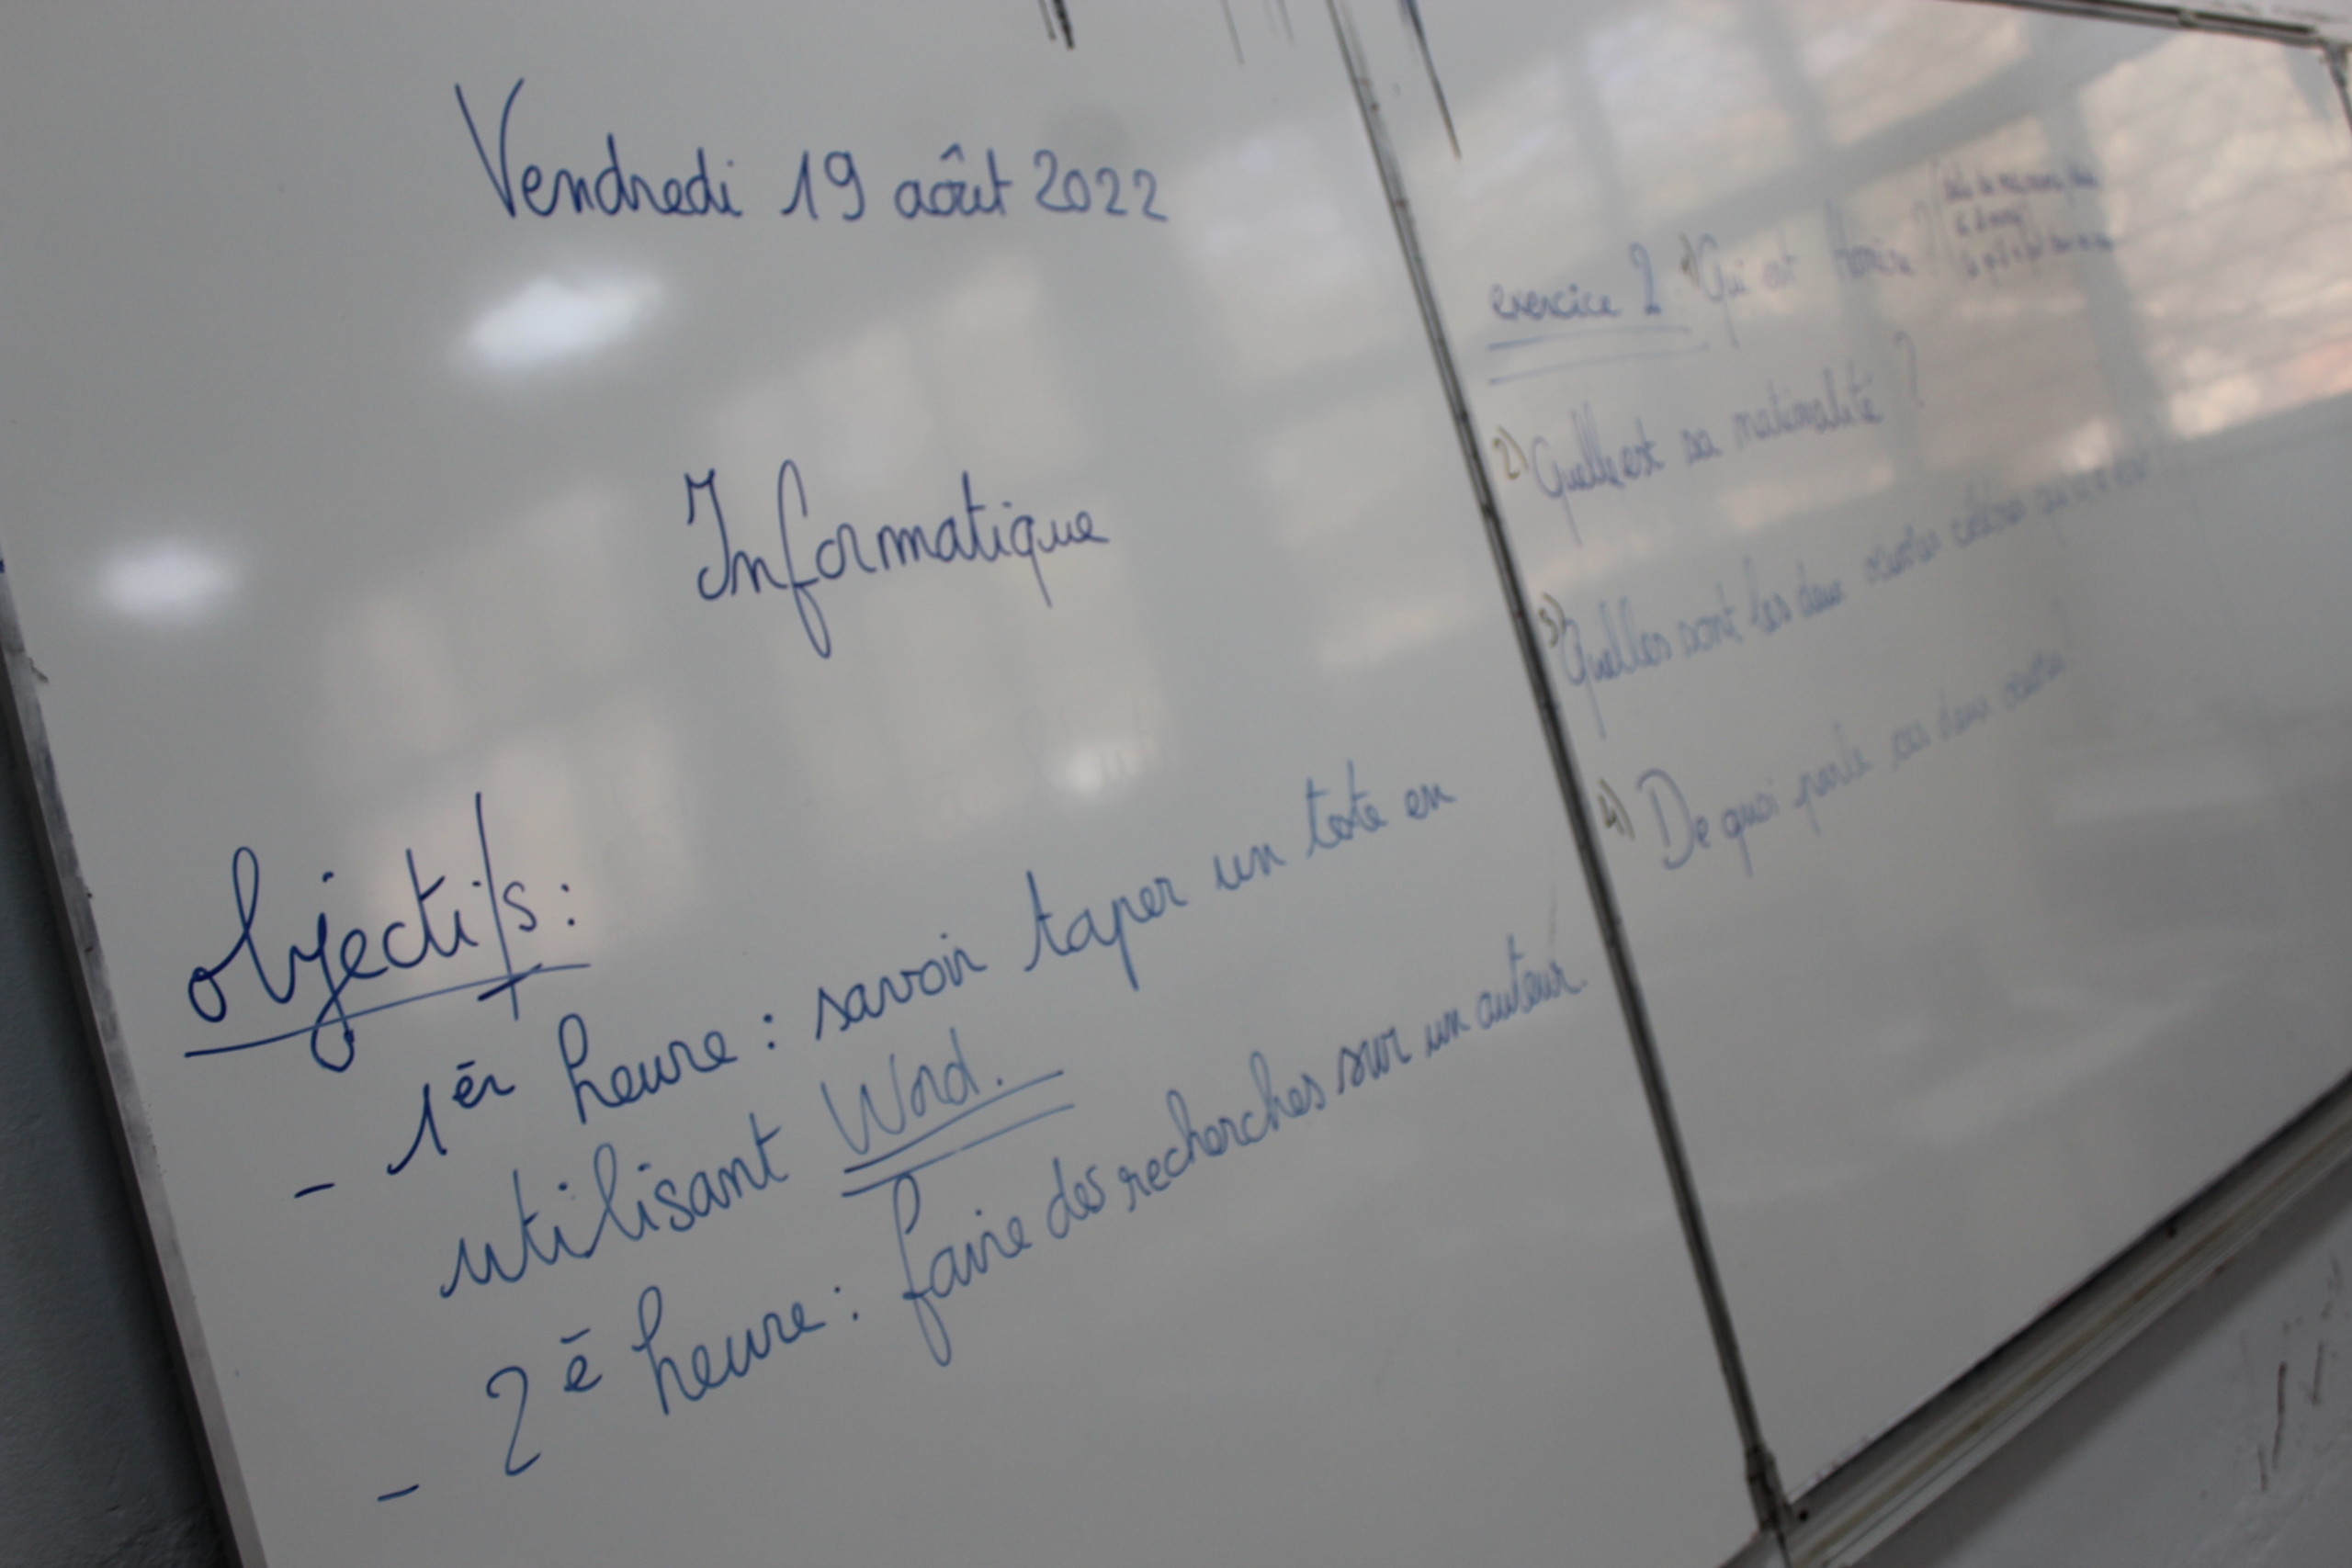 Vendredi 19 août 2022
Informatique
Objectifs :
- 1èr heure : savoir taper un texte en
utilisant Word.
- 2è heure : faire des recherches sur un auteur.
exercice 2 : 1) Qui est ?
2) Quelle est sa nationalité ?
3) Quelles sont les deux célèbres
4) De quoi parle ces deux